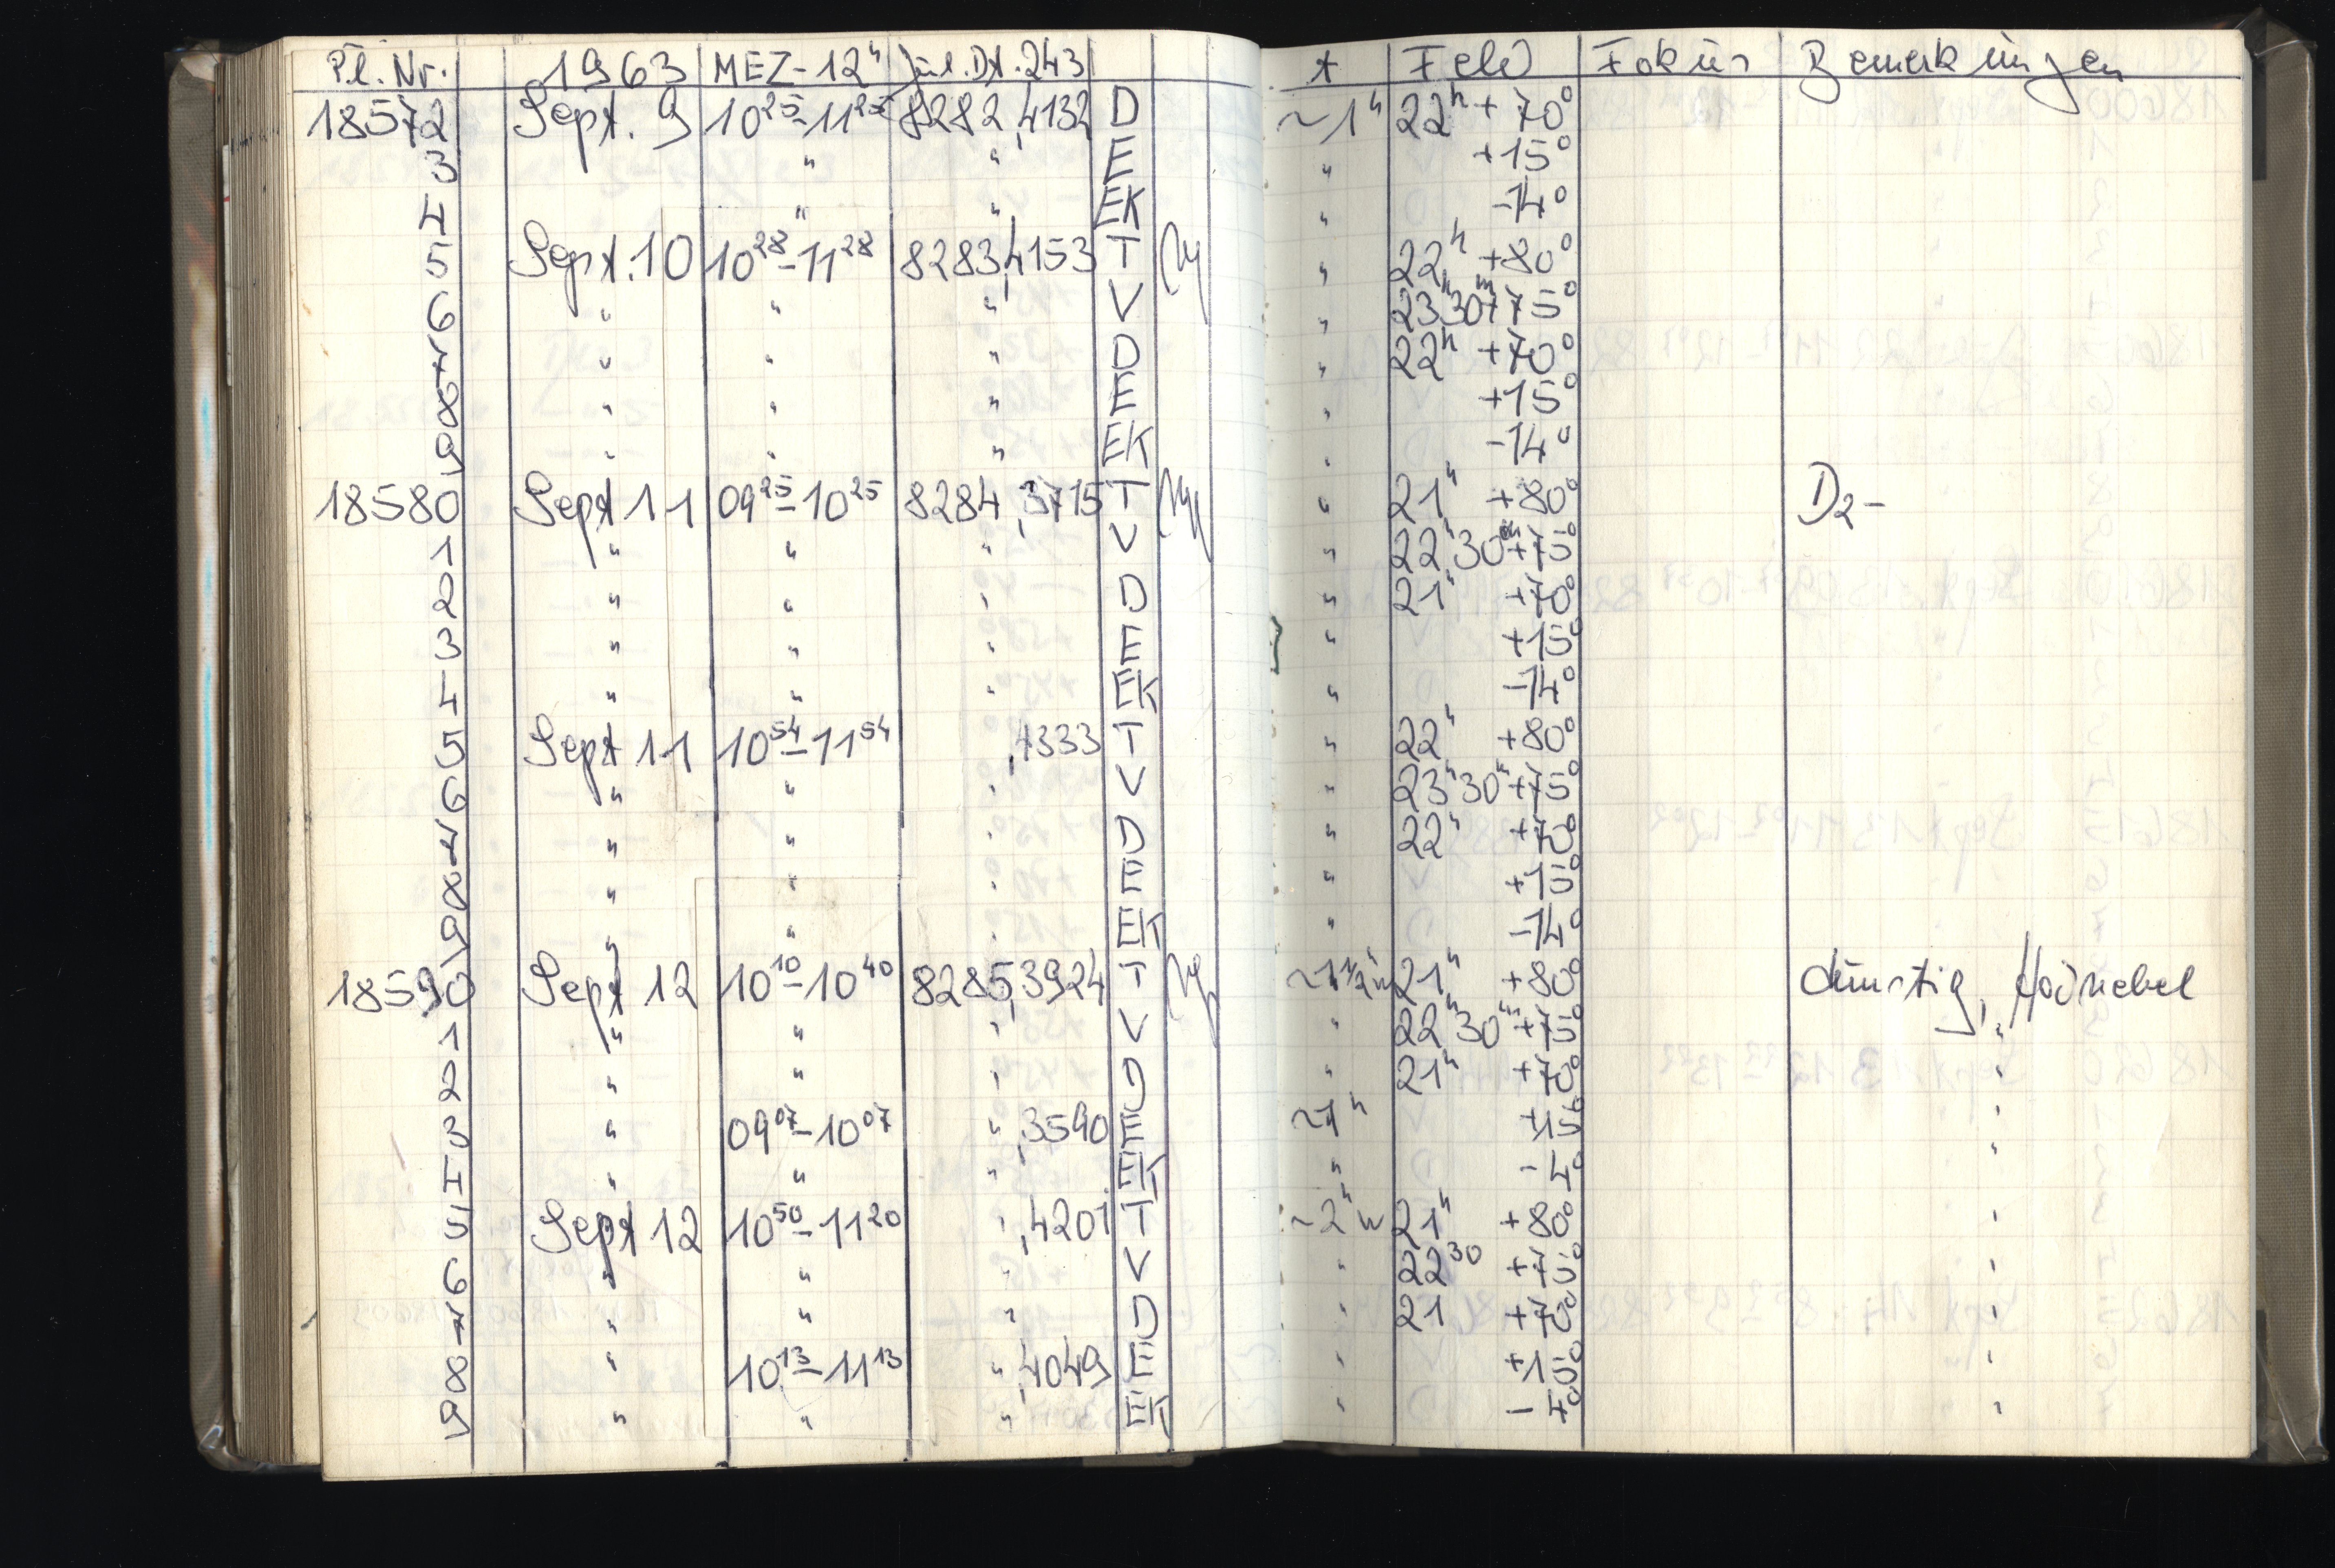 Pl. Nr. 1963 MEZ-12h Jul. Dt. 243 t Feld Fokus Bemerkungen
18572 Sept. 9 10 25 - 11 25 8282,4132 D ~1h 22h +70°
3 " " E " +15°
4 " " EK " -14°
5 Sept. 10 10 28 - 11 28 8283,4153 T " 22h +80°
6 " " " V " 23h30m+75°
7 " " " D " 22h +70°
8 " " " E " +15°
9 " " " EK " -14°
18580 Sept 11 09 25 - 10 25 8284,3715 T " 21h +80° D2-
1 " " " V " 22h30m+75°
2 " " " D " 21h +70°
3 " " " E " +15°
4 " " " EK " -14°
5 Sept 11 10 54 - 11 54 ,4333 T " 22h +80°
6 " " " V " 23h30m+75°
7 " " " D " 22h +70°
8 " " " E " +15°
9 " " " EK " -14°
18590 Sept 12 10 10 - 10 40 8285,3924 T ~1 1/2h w 21h +80° dunstig, Hofnebel
1 " " " V " 22h30m+75° "
2 " " " D " 21h +70° "
3 " 09 07 - 10 07 " ,3590 E ~1h +15° "
4 " " " EK " -14° "
5 Sept 12 10 50 - 11 20 " ,4201 T ~2h w 21h +80° "
6 " " " V " 22 30 +75° "
7 " " " D " 21 +70° "
8 " 10 13 - 11 13 " ,4049 E " +15° "
9 " " " EK " -14° "